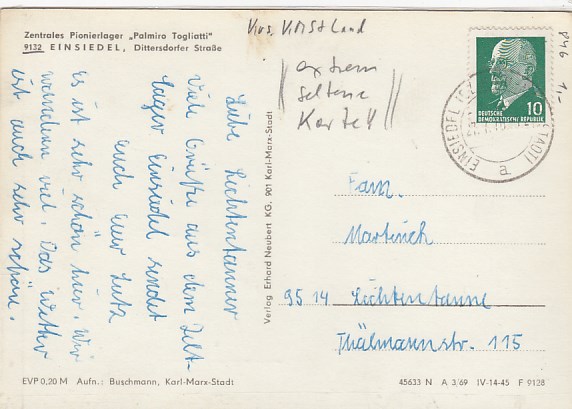 Zentrales Pionierlager „Palmiro Togliatti"
9132 EINSIEDEL, Dittersdorfer Straße
Liebe Lichtentanner
Viele Grüße aus dem Zelt-
lager Einsiedel sendet
euch euer Lutz
Es ist sehr schön hier. Wir
wandern viel. Das Wetter
ist auch sehr schön.
EVP 0,20 M Aufn.: Buschmann, Karl-Marx-Stadt
Verlag Erhard Neubert KG, 901 Karl-Marx-Stadt
extrem
seltene
Karte!!
1,-
10
DEUTSCHE
DEMOKRATISCHE REPUBLIK
EINSIEDEL
a
Fam.
Martinek
9514 Lichtentanne
Thälmannstr. 115
45633 N A 3/69 IV-14-45 F 9128